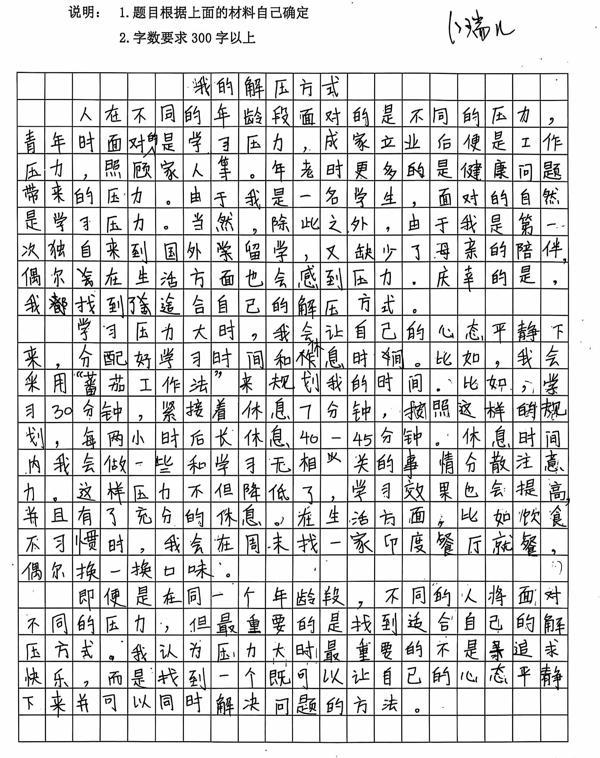 说明：1.题目根据上面的材料自己确定
2.字数要求300字以上
瑞儿
我的解压方式
人在不同的年龄段面对的是不同的压力，
青年时面对的是学习压力，成家立业后便是工作
压力，照顾家人等。年老时更多的是健康问题
带来的压力。由于我是一名学生，面对的自然
是学习压力。当然，除此之外，由于我是第一
次独自来到国外学留学，又缺少了母亲的陪伴，
偶尔会在生活方面也会感到压力。庆幸的是，
我都找到了适合自己的解压方式。
学习压力大时，我会让自己的心态平静下
来，分配好学习时间和休息时间。比如，我会
采用“蕃茄工作法”来规划我的时间。比如，学
习30分钟，紧接着休息7分钟，按照这样的规
划，每两小时后长休息40-45分钟。休息时间
内我会做一些和学习无相关的事情分散注意
力。这样压力不但降低了，学习效果也会提高，
并且有了充分的休息。在生活方面，比如饮食
不习惯时，我会在周末找一家印度餐厅就餐，
偶尔换一换口味。
即便是在同一个年龄段，不同的人将面对
不同的压力，但最重要的是找到适合自己的解
压方式。我认为压力大时最重要的不是追求
快乐，而是找到一个既可以让自己的心态平静
下来并可以同时解决问题的方法。